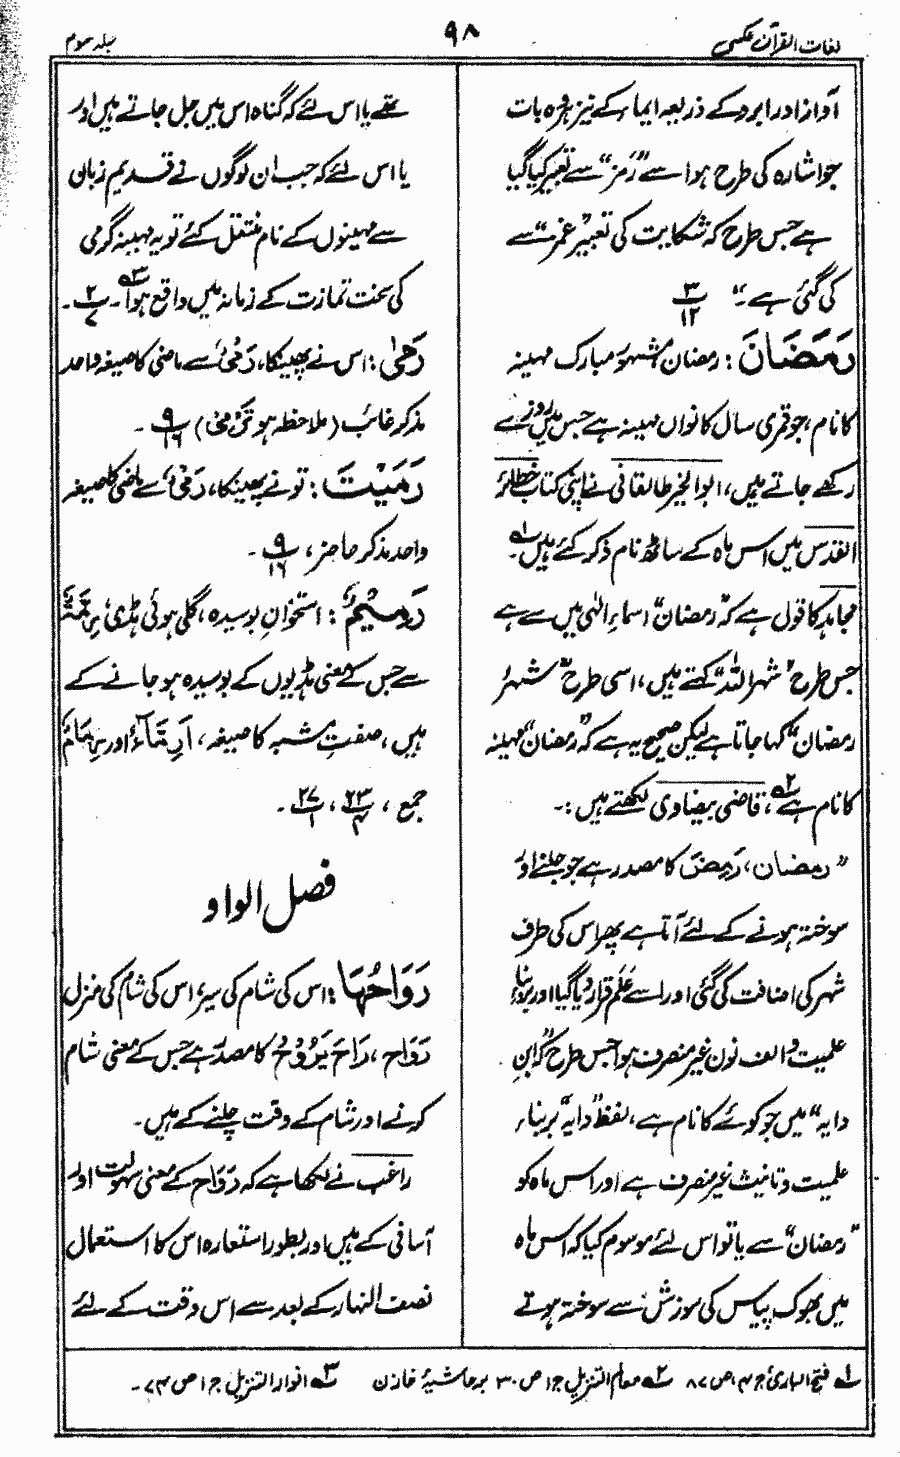 لغات القرآن عکسی
۹۸
جلد سوم
آواز اور ابرو کے ذریعہ ایما کے نیز ہر وہ بات
جو اشارہ کی طرح ہو اسے "رَمز" سے تعبیر کیا گیا
ہے جس طرح کہ شکایت کی تعبیر "غمز" سے
کی گئی ہے۔" ۳/۱۲
رَمَضَانَ: رمضان مشہور مبارک مہینہ
کا نام، جو قمری سال کا نواں مہینہ ہے جس میں روزے
رکھے جاتے ہیں، ابوالخیر طالقانی نے اپنی کتاب حظائر
القدس میں اس ماہ کے ساٹھ نام ذکر کئے ہیں ۱؎۔
مجاہد کا قول ہے کہ "رمضان" اسماءِ الٰہی میں سے ہے
جس طرح "شہر اللہ" کہتے ہیں، اسی طرح "شہرُ
رمضان" کہا جاتا ہے لیکن صحیح یہ ہے کہ "رمضان" مہینہ
کا نام ہے ۲؎، قاضی بیضاوی لکھتے ہیں:-
"رمضان، رَمِضَ کا مصدر ہے جو جلنے اور
سوختہ ہونے کے لئے آتا ہے پھر اس کی طرف
شہر کی اضافت کی گئی اور اسے عَلَم قرار دیا گیا اور بربناءِ
علمیت و الف نون غیر منصرف ہوا جس طرح کہ "ابنِ
دایہ" میں جو کوئے کا نام ہے، لفظ "دایہ" بربناء
علمیت و تانیث غیر منصرف ہے اور اس ماہ کو
"رمضان" سے یا تو اس لئے موسوم کیا کہ اس ماہ
میں بھوک پیاس کی سوزش سے سوختہ ہوتے
تھے یا اس لئے کہ گناہ اس میں جل جاتے ہیں اور
یا اس لئے کہ جب ان لوگوں نے قدیم زبان
سے مہینوں کے نام منتقل کئے تو یہ مہینہ گرمی
کی سخت تمازت کے زمانہ میں واقع ہوا ۳؎۔ ۲/۷۔
رَمٰی: اس نے پھینکا، رَمْیٌ سے ماضی کا صیغہ واحد
مذکر غائب (ملاحظہ ہو تَرْمِیْ) ۹/۱۶۔
رَمَیْتَ: تو نے پھینکا، رَمْیٌ سے ماضی کا صیغہ
واحد مذکر حاضر، ۹/۱۶۔
رَمِیْمٌ: استخوانِ بوسیدہ، گلی ہوئی ہڈی رِمَّةٌ
سے جس کے معنی ہڈیوں کے بوسیدہ ہو جانے کے
ہیں، صفتِ مشبہ کا صیغہ، اَرِمَّاءُ اور رِمَامٌ
جمع، ۲۳/۴، ۲۷/۱۔
فصل الواو
رَوَاحُهَا: اس کی شام کی سیر، اس کی شام کی منزل
رَوَاح، رَاحَ یَرُوْحُ کا مصدر ہے جس کے معنی شام
کرنے اور شام کے وقت چلنے کے ہیں۔
راغب نے لکھا ہے کہ رَوَاح کے معنی سہولت اور
آسانی کے ہیں اور بطور استعارہ اس کا استعمال
نصف النہار کے بعد سے اس وقت کے لئے
۱؎ فتح الباری ج ۴ ص ۸۷ ۲؎ معالم التنزیل ج ۱ ص ۳۰ برحاشیۂ خازن ۳؎ انوار التنزیل ج ۱ ص ۷۴۔